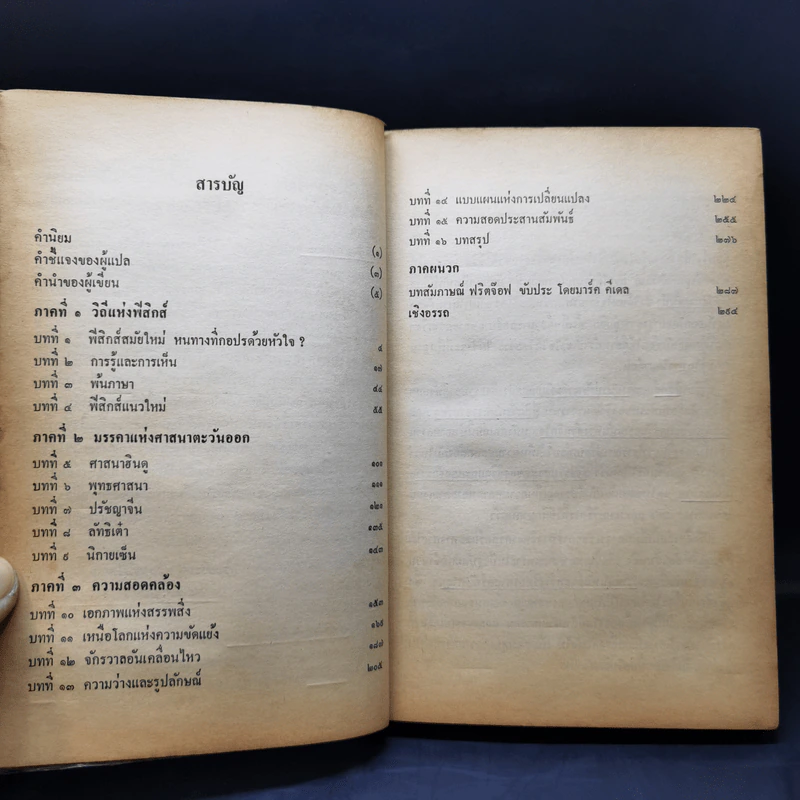 สารบัญ
คำนิยม (๑)
คำชี้แจงของผู้แปล (๓)
คำนำของผู้เขียน (๕)
ภาคที่ ๑ วิถีแห่งฟิสิกส์
บทที่ ๑ ฟิสิกส์สมัยใหม่ หนทางที่กอปรด้วยหัวใจ ? ๔
บทที่ ๒ การรู้และการเห็น ๑๗
บทที่ ๓ พ้นภาษา ๔๔
บทที่ ๔ ฟิสิกส์แนวใหม่ ๕๕
ภาคที่ ๒ มรรคาแห่งศาสนาตะวันออก
บทที่ ๕ ศาสนาฮินดู ๑๐๑
บทที่ ๖ พุทธศาสนา ๑๑๑
บทที่ ๗ ปรัชญาจีน ๑๒๑
บทที่ ๘ ลัทธิเต๋า ๑๓๕
บทที่ ๙ นิกายเซ็น ๑๔๓
ภาคที่ ๓ ความสอดคล้อง
บทที่ ๑๐ เอกภาพแห่งสรรพสิ่ง ๑๕๓
บทที่ ๑๑ เหนือโลกแห่งความขัดแย้ง ๑๖๕
บทที่ ๑๒ จักรวาลอันเคลื่อนไหว ๑๘๗
บทที่ ๑๓ ความว่างและรูปลักษณ์ ๒๐๕
บทที่ ๑๔ แบบแผนแห่งการเปลี่ยนแปลง ๒๒๔
บทที่ ๑๕ ความสอดประสานสัมพันธ์ ๒๕๕
บทที่ ๑๖ บทสรุป ๒๗๖
ภาคผนวก
บทสัมภาษณ์ ฟริตจ๊อฟ ขับประ โดยมาร์ค คีเดล ๒๘๗
เชิงอรรถ ๒๙๔